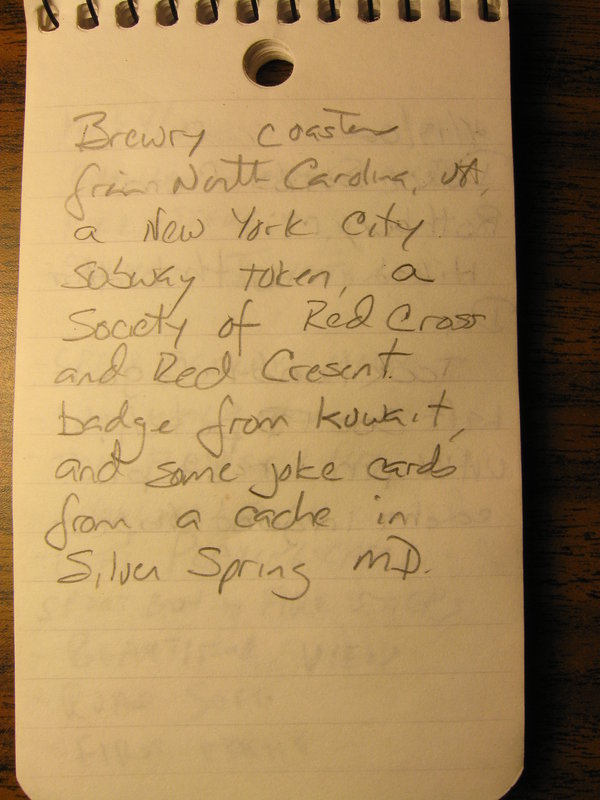 Brewry coaster
from North Carolina, VA,
a New York City
subway token, a
Society of Red Cross
and Red Cresent
badge from Kuwait,
and some joke cards
from a cache in
Silver Spring MD.